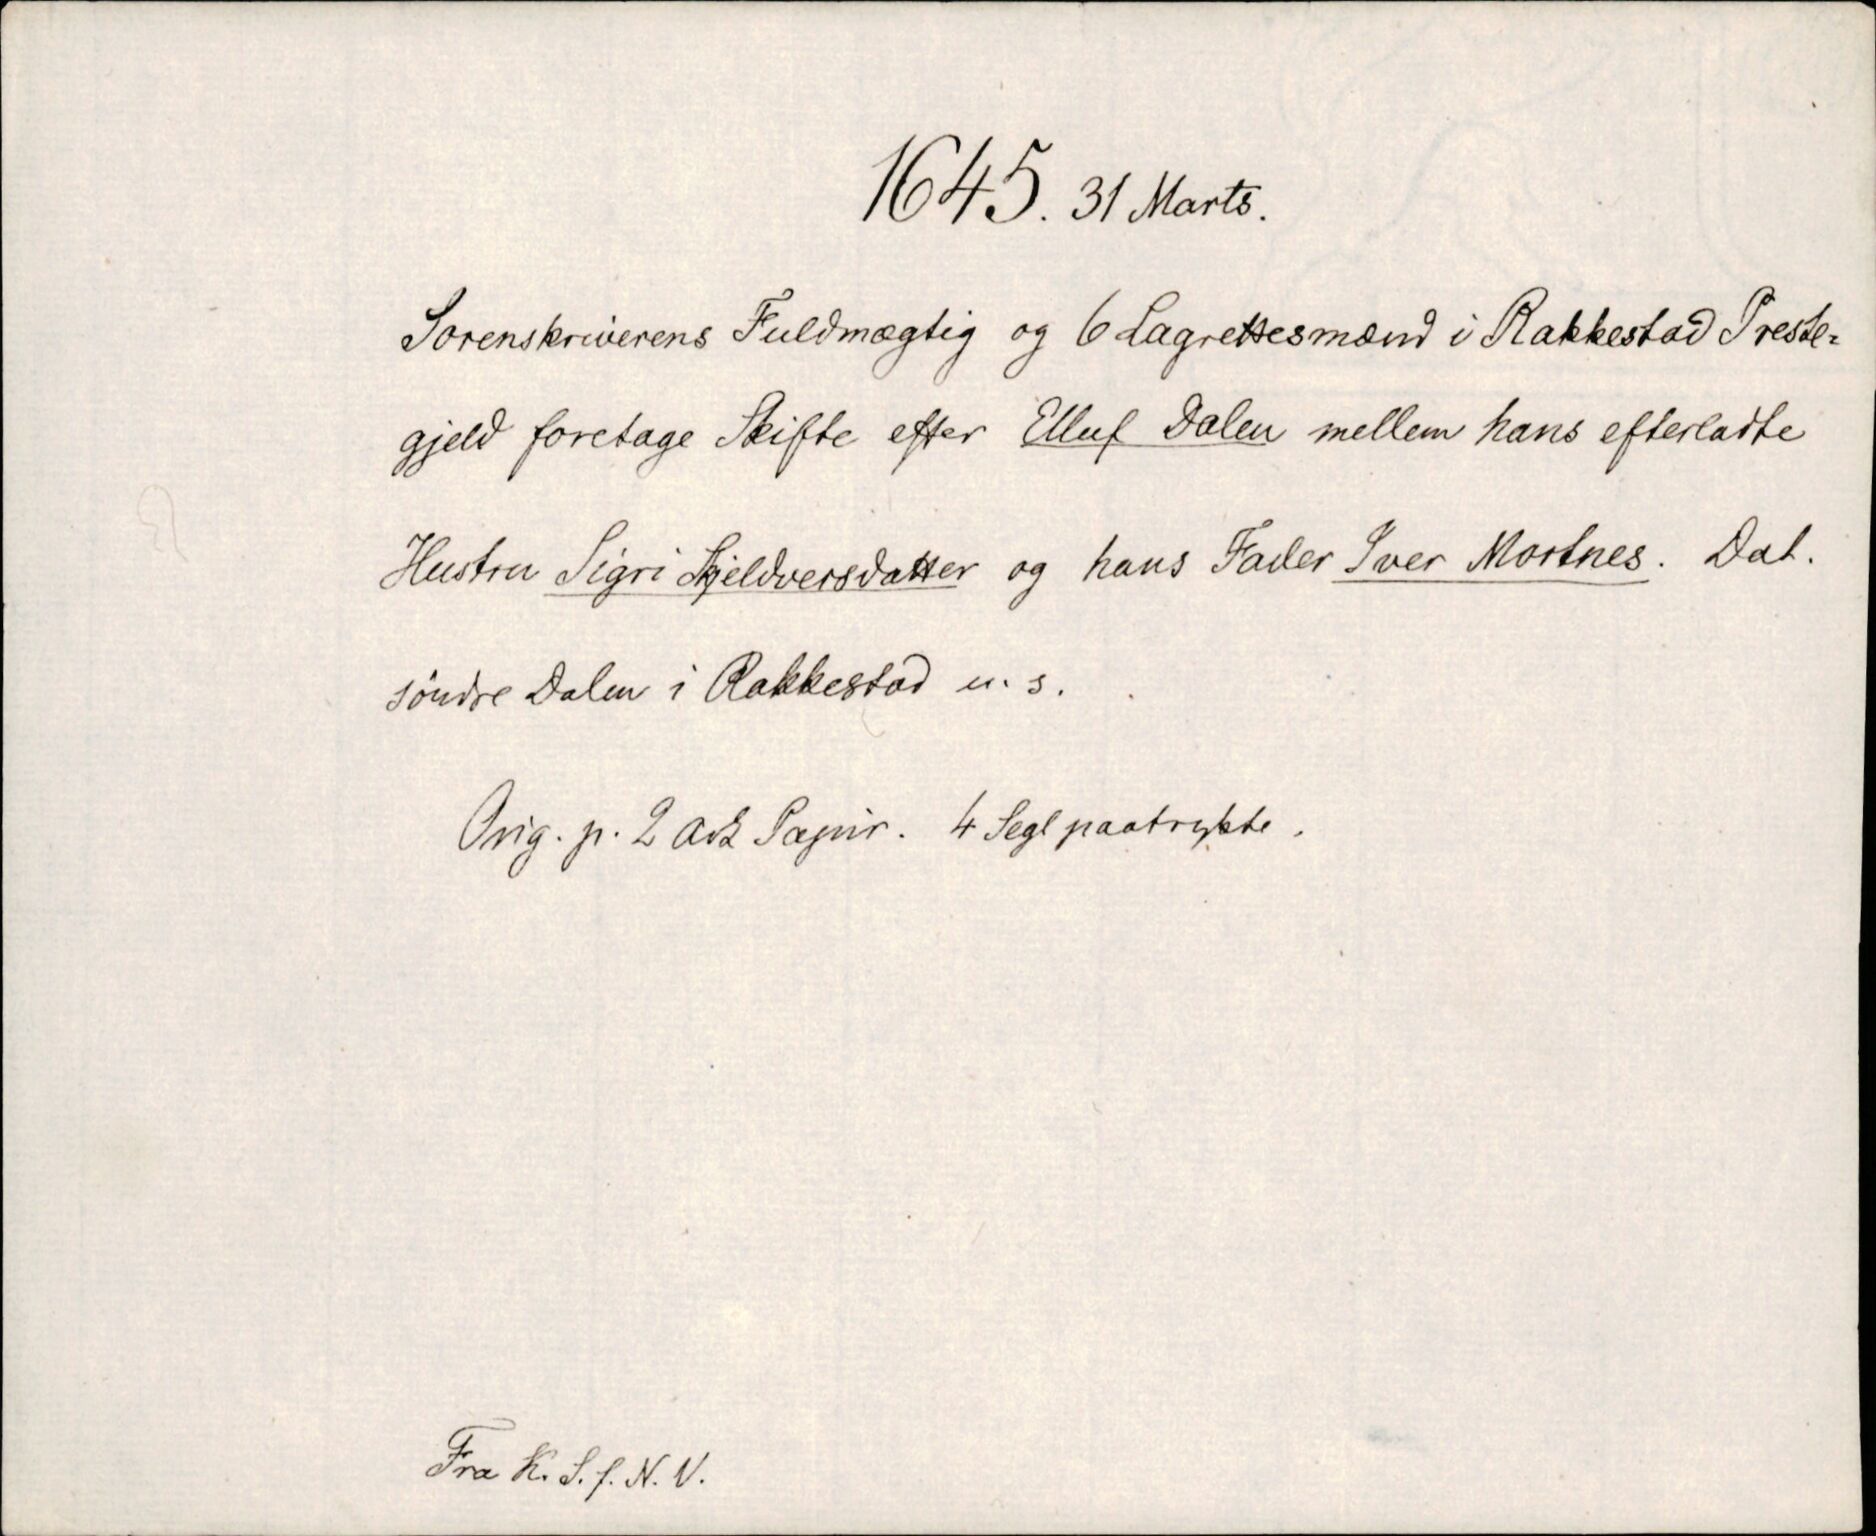 1645. 31 Marts.
Sorenskriverens Fuldmægtig og 6 Lagrettesmænd i Rakkestad Preste-
gjeld foretage Skifte efter Elluf Dalen mellem hans efterladte
Hustru Sigri Skjeldversdatter og hans Fader Iver Mortnes. Dat.
söndre Dalen i Rakkestad u. s.
Orig. p. 2 Ark Papir. 4 Segl paatrykte.
Fra K. S. f. N. V.